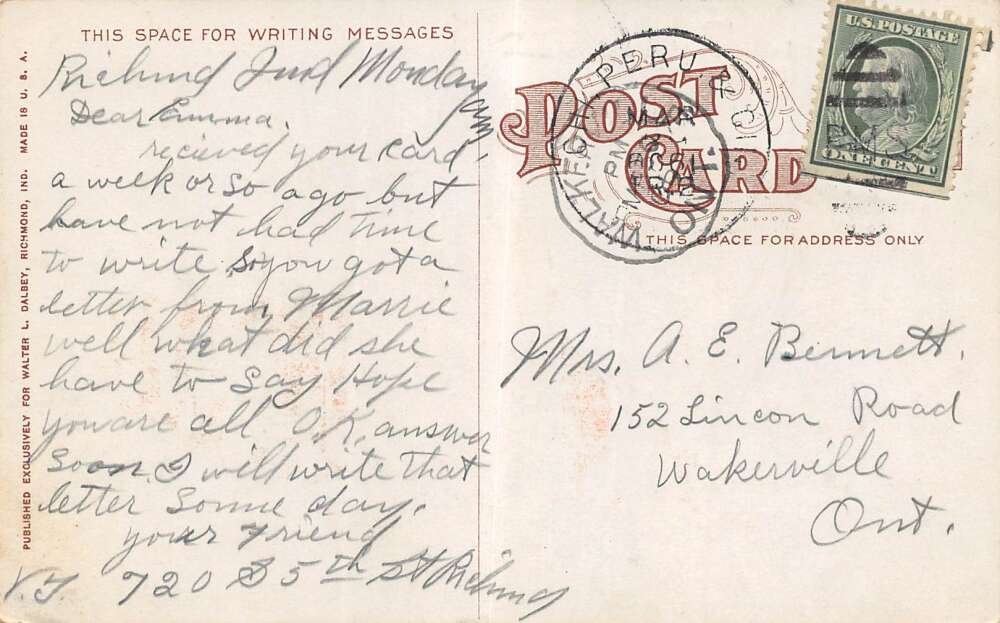 THIS SPACE FOR WRITING MESSAGES
Richmd Ind Monday
am
Dear Emma.
recieved your card
a week or so ago but
have not had time
to write, so you got a
letter from Marrie
well what did she
have to say Hope
you are all O.K. answer
soon. I will write that
letter some day.
your Friend
V.T. 720 S 5th St Richmd
PUBLISHED EXCLUSIVELY FOR WALTER L. DALBEY, RICHMOND, IND. MADE IN U.S.A.
POST CARD
THIS SPACE FOR ADDRESS ONLY
PERU & CI
MAR
PM
WALKER
ONT.
U.S. POSTAGE
ONE CENT
R.M.S.
Mrs. A. E. Bennett.
152 Lincon Road
Wakerville
Ont.